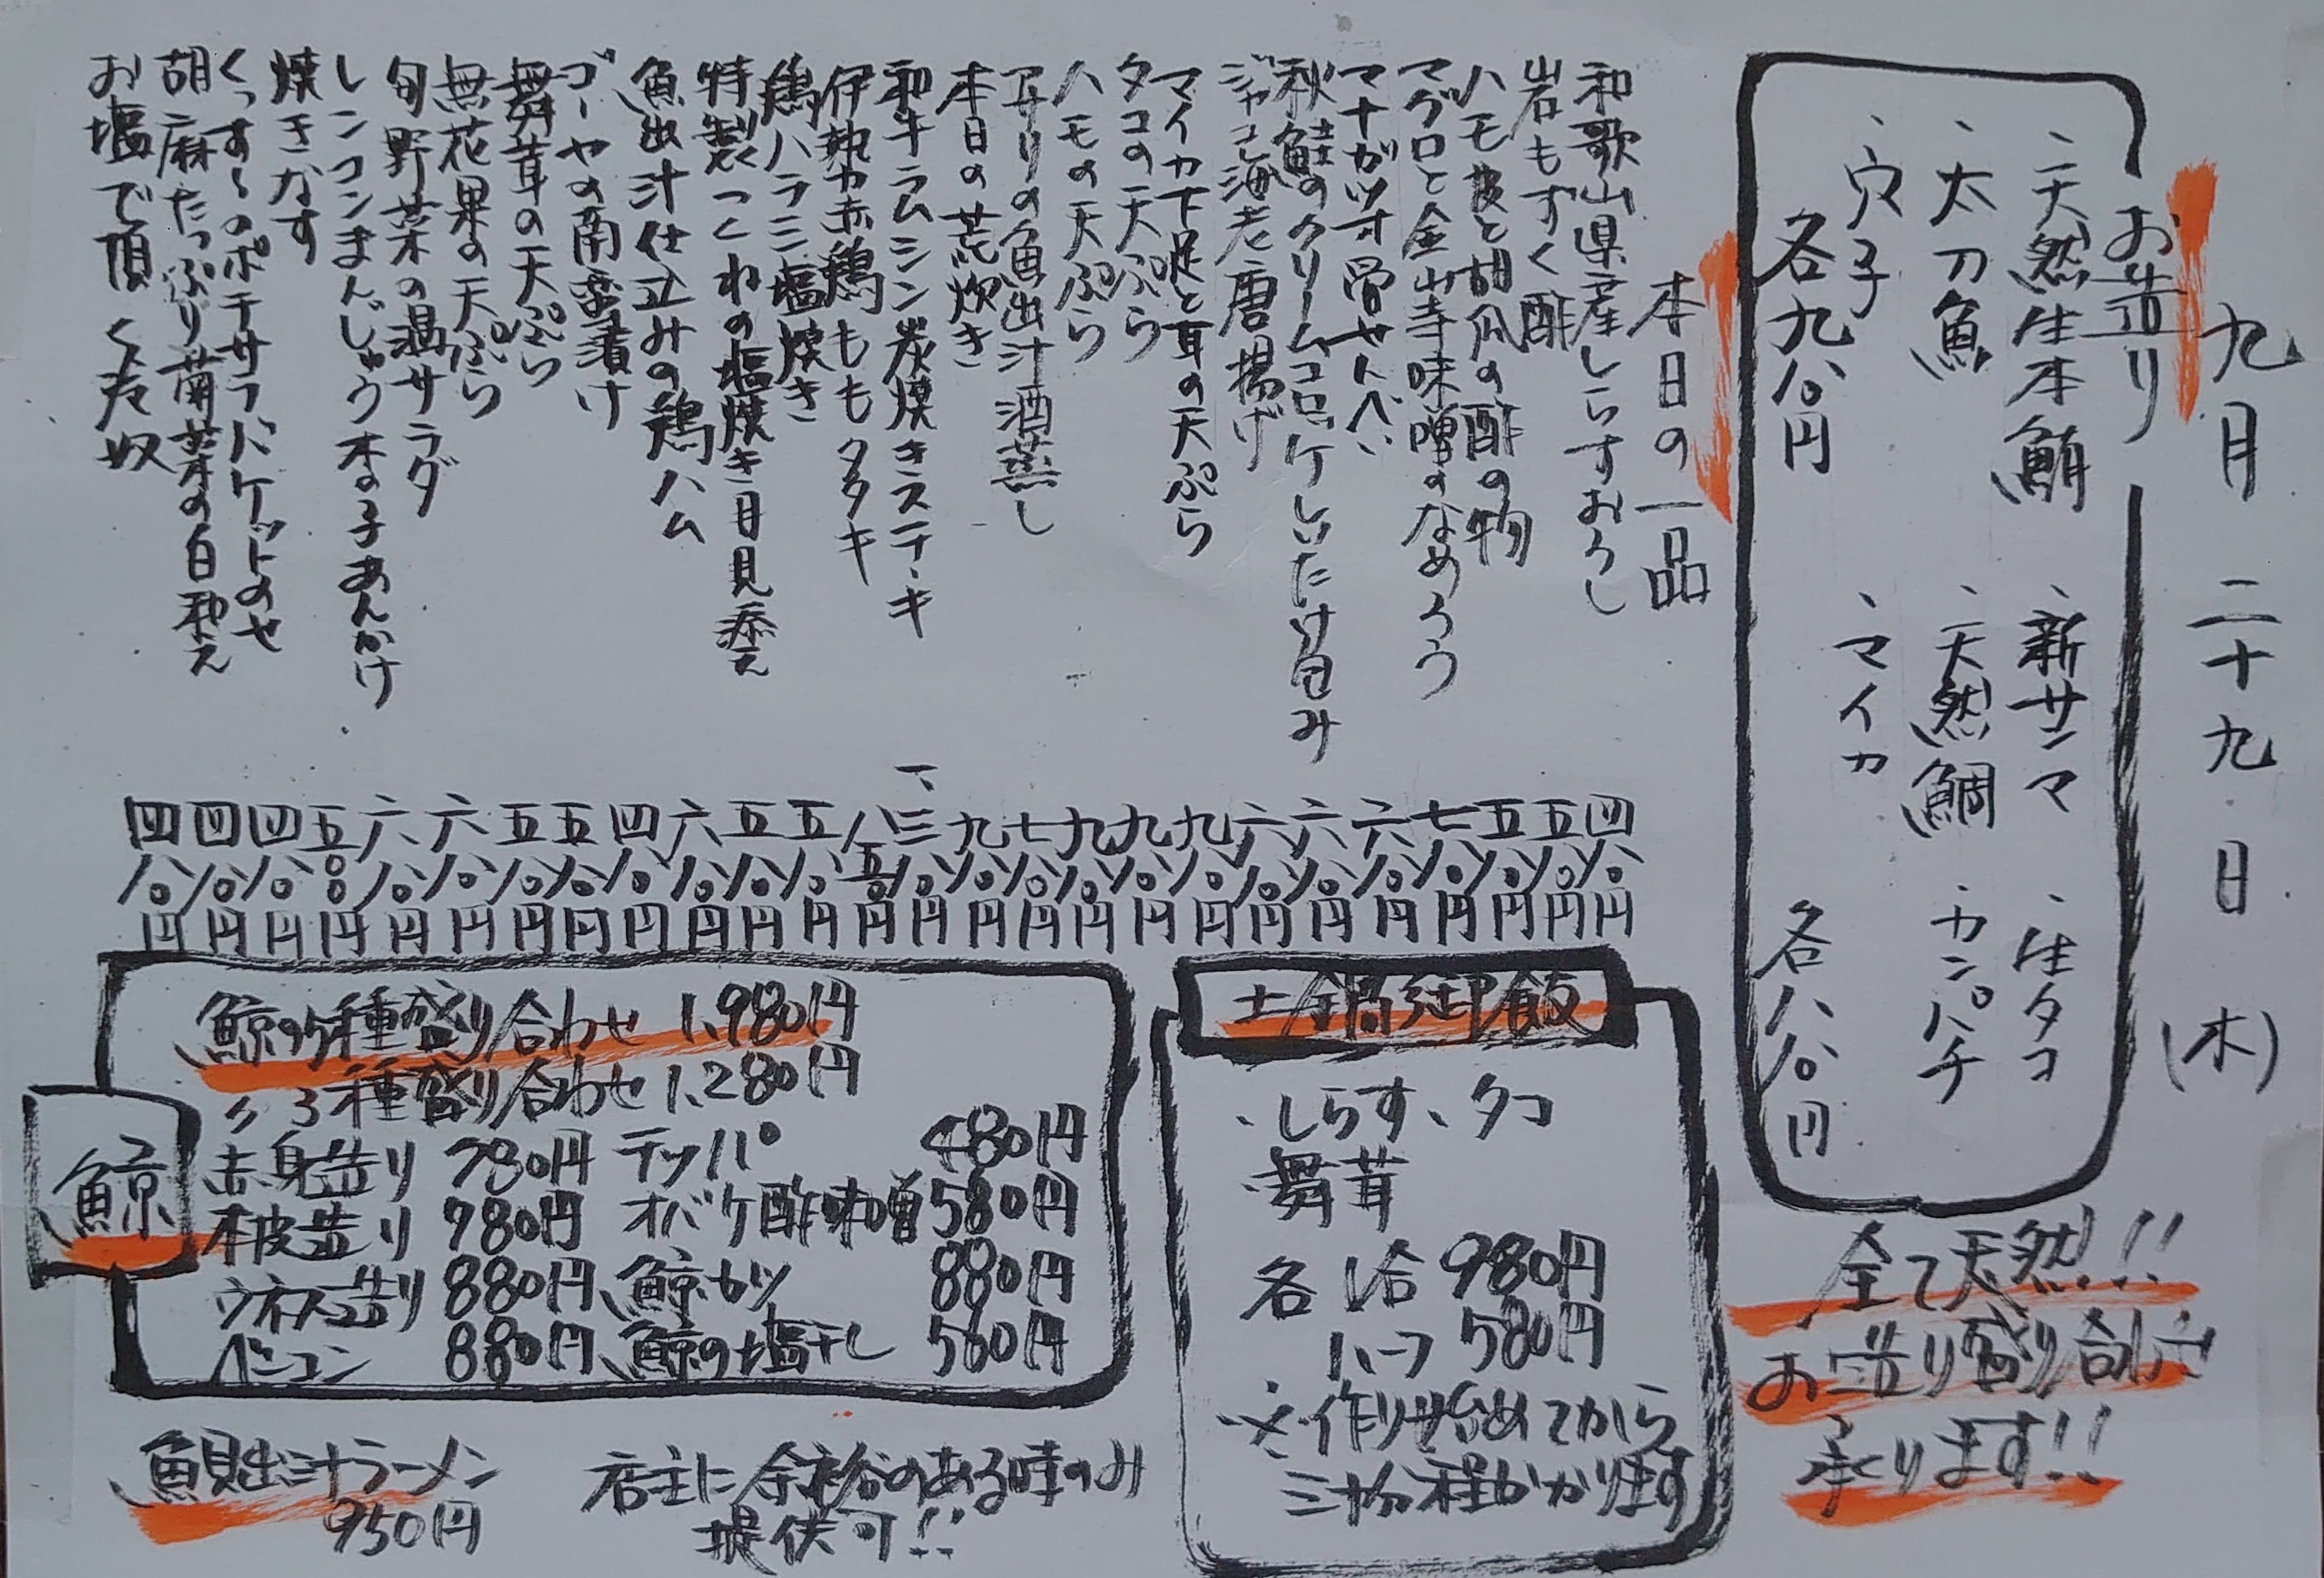 九月二十九日(木)
お造り
、天然生本鮪
、新サンマ
、生タコ
、太刀魚
、天然鯛
、カンパチ
、穴子
、マイカ
各九八〇円
各八八〇円
全て天然!!
お造り盛り合わせ
承ります!!
本日の一品
和歌山県産しらすおろし 四八〇円
岩もずく酢 五八〇円
ハモ皮と胡瓜の酢の物 五八〇円
マグロと金山寺味噌のなめろう 七八〇円
マナガツオ骨せんべい 六八〇円
秋鮭のクリームコロッケしいたけ包み 六八〇円
ジャコ海老唐揚げ 六八〇円
マイカ下足と耳の天ぷら 九八〇円
タコの天ぷら 九八〇円
ハモの天ぷら 九八〇円
アサリの魚出汁酒蒸し 七八〇円
本日の荒炊き 九八〇円
和牛ラムシン炭焼きステーキ 一、三八〇円
伊勢赤鶏ももタタキ 八五〇円
鶏ハラミ塩焼き 五八〇円
特製つくねの塩焼き月見添え 五八〇円
魚出汁仕立みの鶏ハム 六八〇円
ゴーヤの南蛮漬け 四八〇円
舞茸の天ぷら 五八〇円
無花果の天ぷら 五八〇円
旬野菜の温サラダ 六八〇円
レンコンまんじゅう木の子あんかけ 六八〇円
焼きなす 五〇〇円
くっすくのポテサラバケットのせ 四八〇円
胡麻たっぷり菊菜の白和え 四八〇円
お塩で頂く冷奴 四八〇円
土鍋御飯
、しらす、タコ
、舞茸
各 1合 980円
ハーフ 580円
※作り始めてから
三十分程かかります
鯨
鯨の5種盛り合わせ 1,980円
〃 3種盛り合わせ 1,280円
赤身造り 780円 テッパ 480円
本皮造り 780円 オバケ酢味噌 580円
ウネス造り 880円 鯨カツ 880円
ベーコン 880円 鯨の塩干し 560円
魚貝出汁ラーメン
950円
店主に余裕のある時のみ
提供可!!